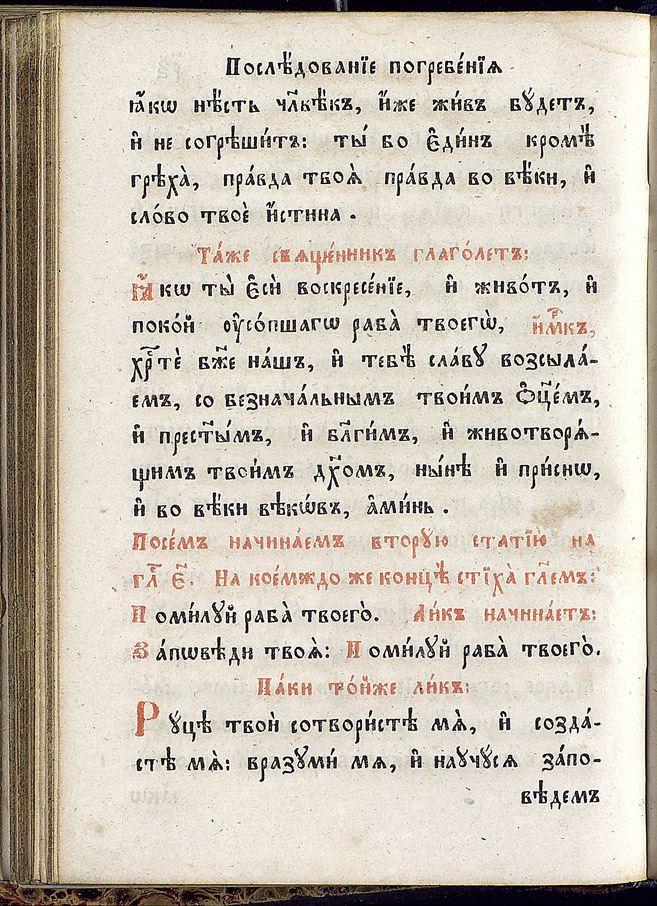 Послѣ́дованїе погребе́нїѧ
ꙗ҆́кѡ нѣ́сть чл҃вѣ́къ, и҆́же жи́въ бꙋ́детъ,
и҆ не согрѣши́тъ: ты́ бо є҆ди́нъ кромѣ̀
грѣха̀, пра́вда твоѧ̀ пра́вда во вѣ́ки, и҆
сло́во твоѐ и҆́стина .
Та́же свѧще́нникъ глаго́летъ:
Ꙗ҆́кѡ ты̀ є҆сѝ воскресе́нїе, и҆ живо́тъ, и҆
поко́й ᲂу҆со́пшагѡ раба̀ твоегѡ̀, и҆мⷬ҇къ,
хрⷭ҇тѐ бж҃е на́шъ, и҆ тебѣ̀ сла́вꙋ возсыла́-
емъ, со безнача́льнымъ твои́мъ ѻ҆ц҃е́мъ,
и҆ прест҃ы́мъ, и҆ бл҃ги́мъ, и҆ животворѧ́-
щимъ твои́мъ дх҃омъ, ны́нѣ и҆ при́снѡ,
и҆ во вѣ́ки вѣкѡ́въ, а҆ми́нь .
Посе́мъ начина́емъ вторꙋ́ю статїю̀ на
гл҃ъ є҃. На кое́мждо же концѣ̀ стїха̀ гл҃емъ:
Поми́лꙋй раба̀ твоего̀. Ли́къ начина́етъ:
За́пѡвѣди твоѧ̀: Поми́лꙋй раба̀ твоего̀.
Па́ки то́йже ли́къ:
Рꙋ́цѣ твоѝ сотвори́стѣ мѧ̀, и҆ созда́-
стѣ мѧ̀: вразꙋми́ мѧ, и҆ наꙋчꙋ́сѧ за́по-
вѣдемъ